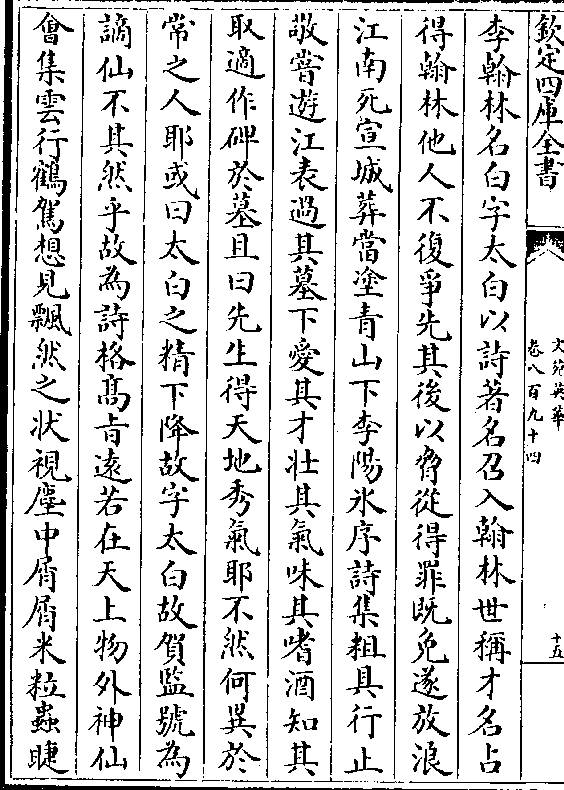 欽定四庫全書
文苑英華
卷八百九十四
十五
李翰林名白字太白以詩著名召入翰林世稱才名占
得翰林他人不復爭先其後以脅從得罪既免遂放浪
江南死宣城葬當塗青山下李陽氷序詩集粗具行止
敬嘗遊江表過其墓下愛其才壯其氣味其嗜酒知其
取適作碑於墓且曰先生得天地秀氣耶不然何異於
常之人耶或曰太白之精下降故字太白故賀監號為
謫仙不其然乎故為詩格髙㫖遠若在天上物外神仙
會集雲行鶴駕想見飄然之状視塵中屑屑米粒蟲睫